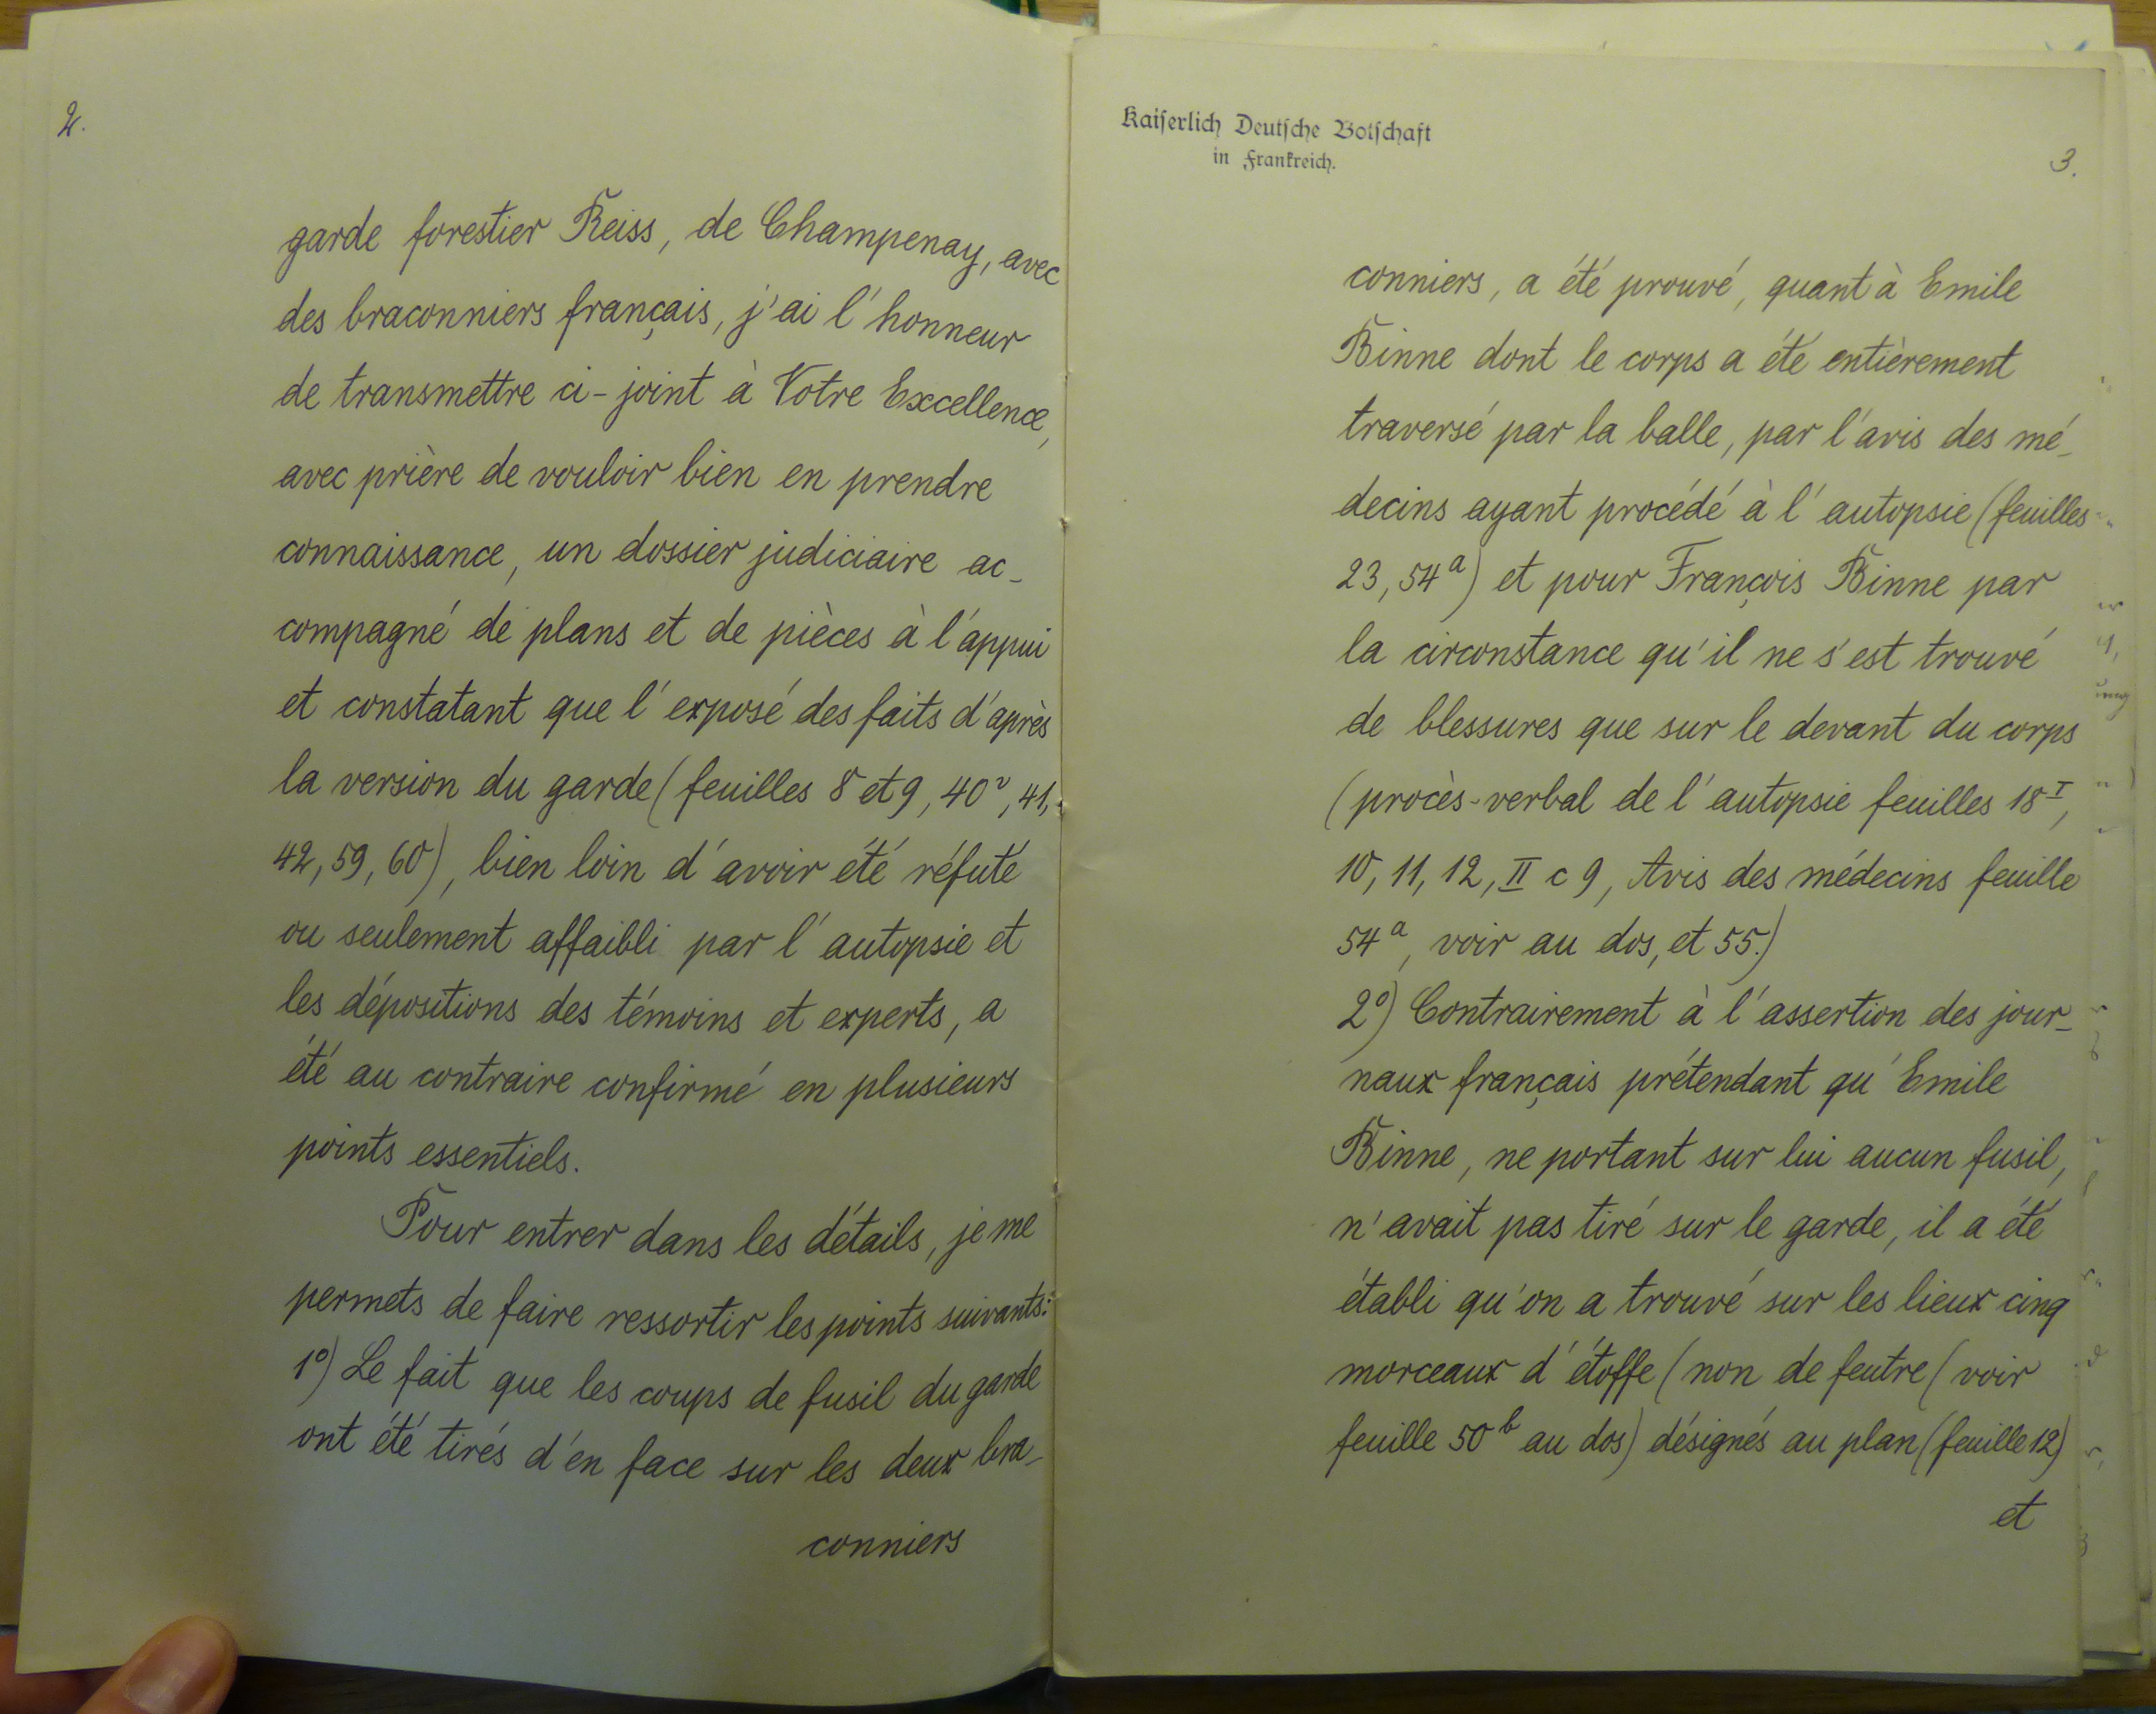 2.
garde forestier Reiss, de Champenay, avec
des braconniers français, j'ai l'honneur
de transmettre ci-joint à Votre Excellence,
avec prière de vouloir bien en prendre
connaissance, un dossier judiciaire ac-
compagné de plans et de pièces à l'appui
et constatant que l'exposé des faits d'après
la version du garde (feuilles 8 et 9, 40v, 41,
42, 59, 60), bien loin d'avoir été réfuté
ou seulement affaibli par l'autopsie et
les dépositions des témoins et experts, a
été au contraire confirmé en plusieurs
points essentiels.
Pour entrer dans les détails, je me
permets de faire ressortir les points suivants:
1°) Le fait que les coups de fusil du garde
ont été tirés d'en face sur les deux bra-
conniers
Kaiserlich Deutsche Botschaft
in Frankreich.
3.
conniers, a été prouvé, quant à Emile
Binne dont le corps a été entièrement
traversé par la balle, par l'avis des mé-
decins ayant procédé à l'autopsie (feuilles
23, 54a) et pour François Binne par
la circonstance qu'il ne s'est trouvé
de blessures que sur le devant du corps
(procès-verbal de l'autopsie feuilles 18 I,
10, 11, 12, II c 9, Avis des médecins feuille
54a, voir au dos, et 55.)
2°) Contrairement à l'assertion des jour-
naux français prétendant qu'Emile
Binne, ne portant sur lui aucun fusil,
n'avait pas tiré sur le garde, il a été
établi qu'on a trouvé sur les lieux cinq
morceaux d'étoffe (non de feutre (voir
feuille 50b au dos) désignés au plan (feuille 12)
et